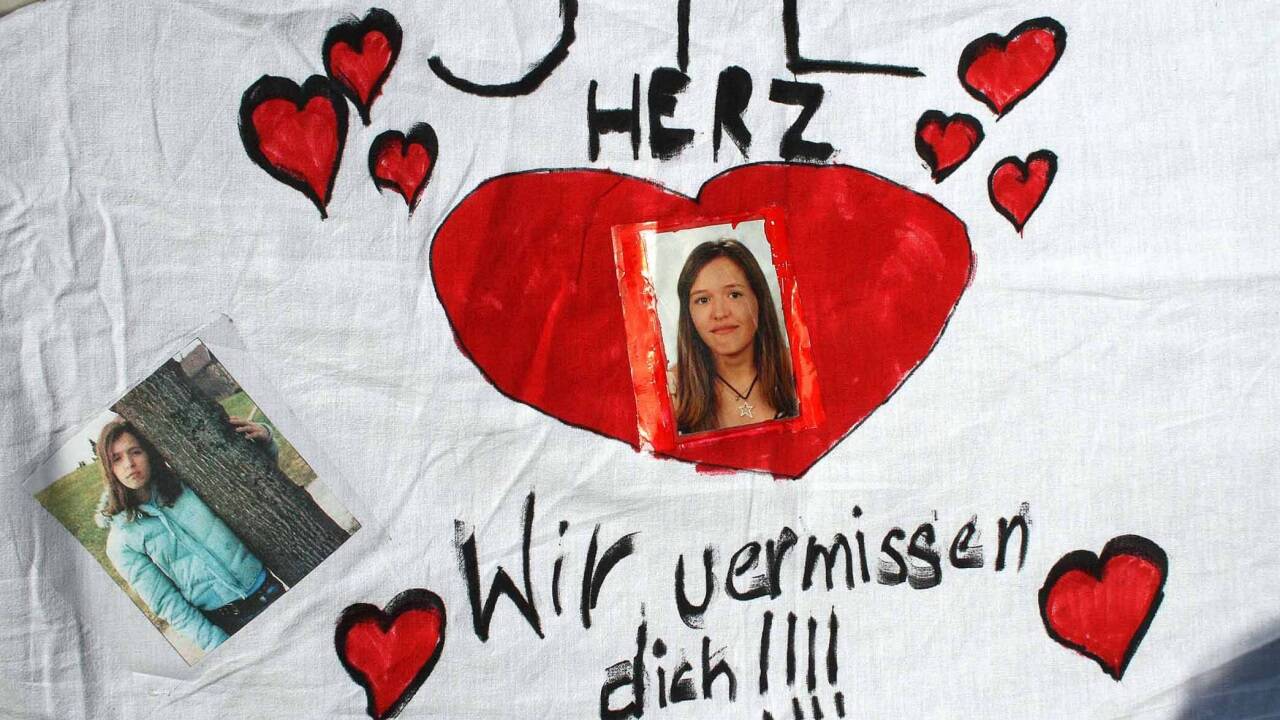 HERZ
Wir vermissen
dich !!!!